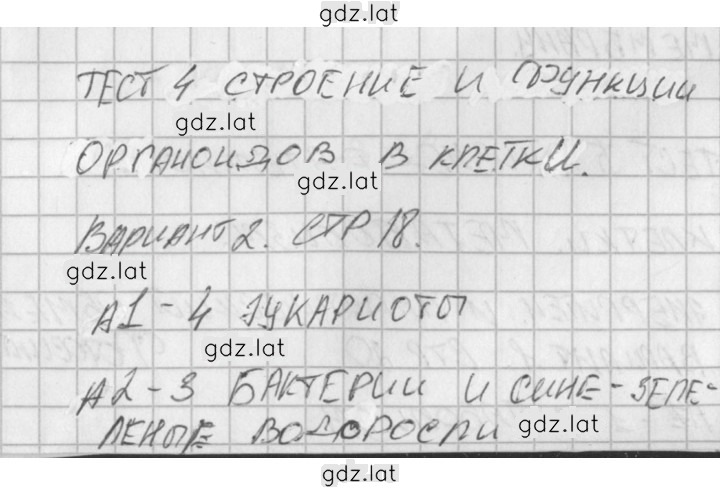 gdz.lat
ТЕСТ 4 СТРОЕНИЕ И ФУНКЦИИ
gdz.lat
ОРГАНОИДОВ В КЛЕТКИ.
gdz.lat
ВАРИАНТ 2. СТР 18.
gdz.lat
А1 - 4 ЭУКАРИОТЫ
gdz.lat
А2 - 3 БАКТЕРИИ И СИНЕ-ЗЕЛЕ-
ЛЕНЫЕ ВОДОРОСЛИ gdz.lat
gdz.lat